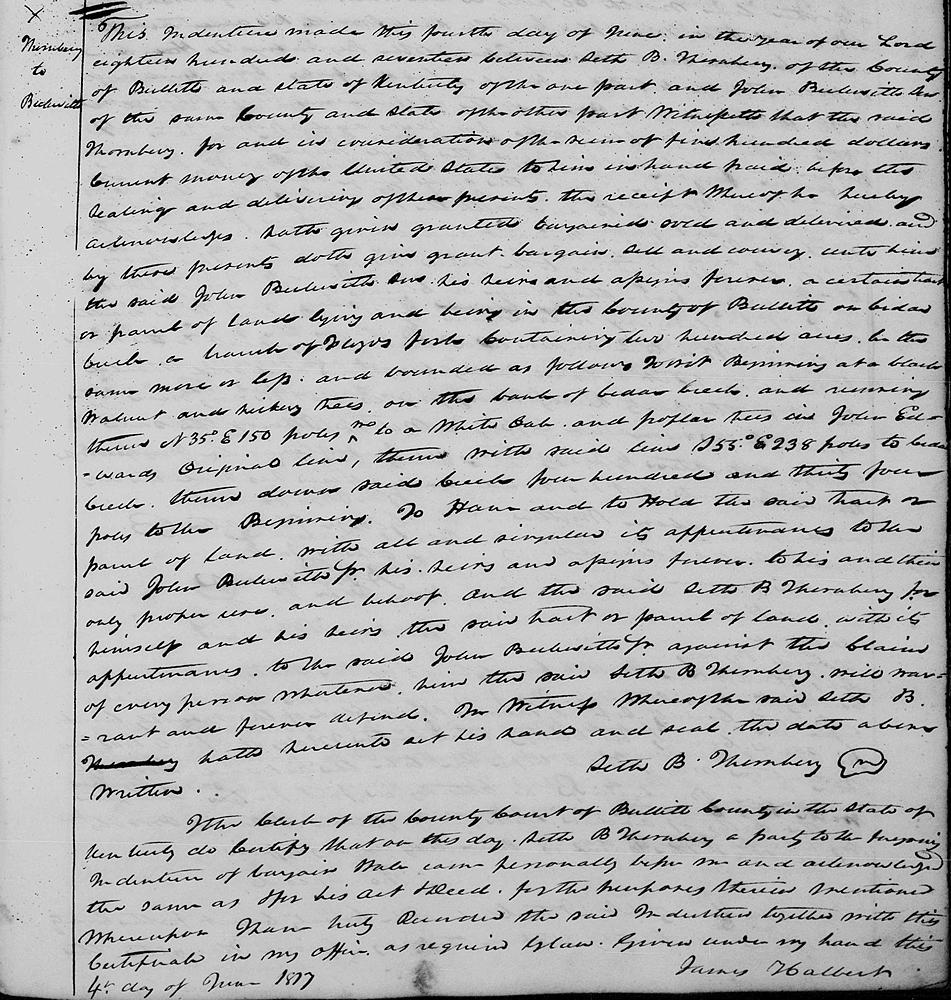 Thornbery
to
Beckwith
This Indenture made this fourth day of June in the year of our Lord
eighteen hundred and seventeen between Seth B. Thornbery of the County
of Bullitt and state of Kentucky of the one part and John Beckwith Jnr
of the same County and State of the other part Witnesseth that the said
Thornbery for and in consideration of the sum of five hundred dollars
Current money of the United States to him in hand paid before the
Sealing and delivering of these presents the receipt Whereof he hereby
acknowledges hath given granted bargained sold and delivered and
by these presents doth give grant bargain Sell and convey unto him
the said John Beckwith Jnr his heirs and assigns forever a certain tract
or parcel of Land lying and being in the County of Bullitt on Cedar
Creek a branch of Floyds fork Containing two hundred acres be the
same more or less and bounded as follows Towit Beginning at a black
Walnut and hickory trees on the bank of Cedar Creek and running
thence N 35° E 150 poles to a White Oak and poplar trees in John Ed-
-wards Original line, thence with said line S 55° E 238 poles to Cedar
Creek thence down said Creek four hundred and thirty four
poles to the Beginning. To Have and to Hold the said tract or
parcel of Land with all and singular its appurtenances to the
said John Beckwith Jr. his heirs and assigns forever to his and their
only proper use and behoof and the said Seth B Thornbery for
himself and his heirs the said tract or parcel of land with its
appurtenances to the said John Beckwith Jr against the Claim
of every person whatever him the said Seth B Thornbery will war=
=rant and forever defend. In Witness Whereof the said Seth B.
Thornbery hath hereunto set his hand and seal the date above
Written.
Seth B. Thornbery
I the Clerk of the County Court of Bullitt County in the State of
Kentucky do Certify that on this day Seth B Thornbery a party to the foregoing
Indenture of bargain & Sale came personally before me and acknowledged
the same as & for his act & Deed for the purposes therein mentioned
Whereupon I have truly Recorded the said Indenture together with this
Certificate in my office as required by Law. Given under my hand this
4th day of June 1817
James Halbert